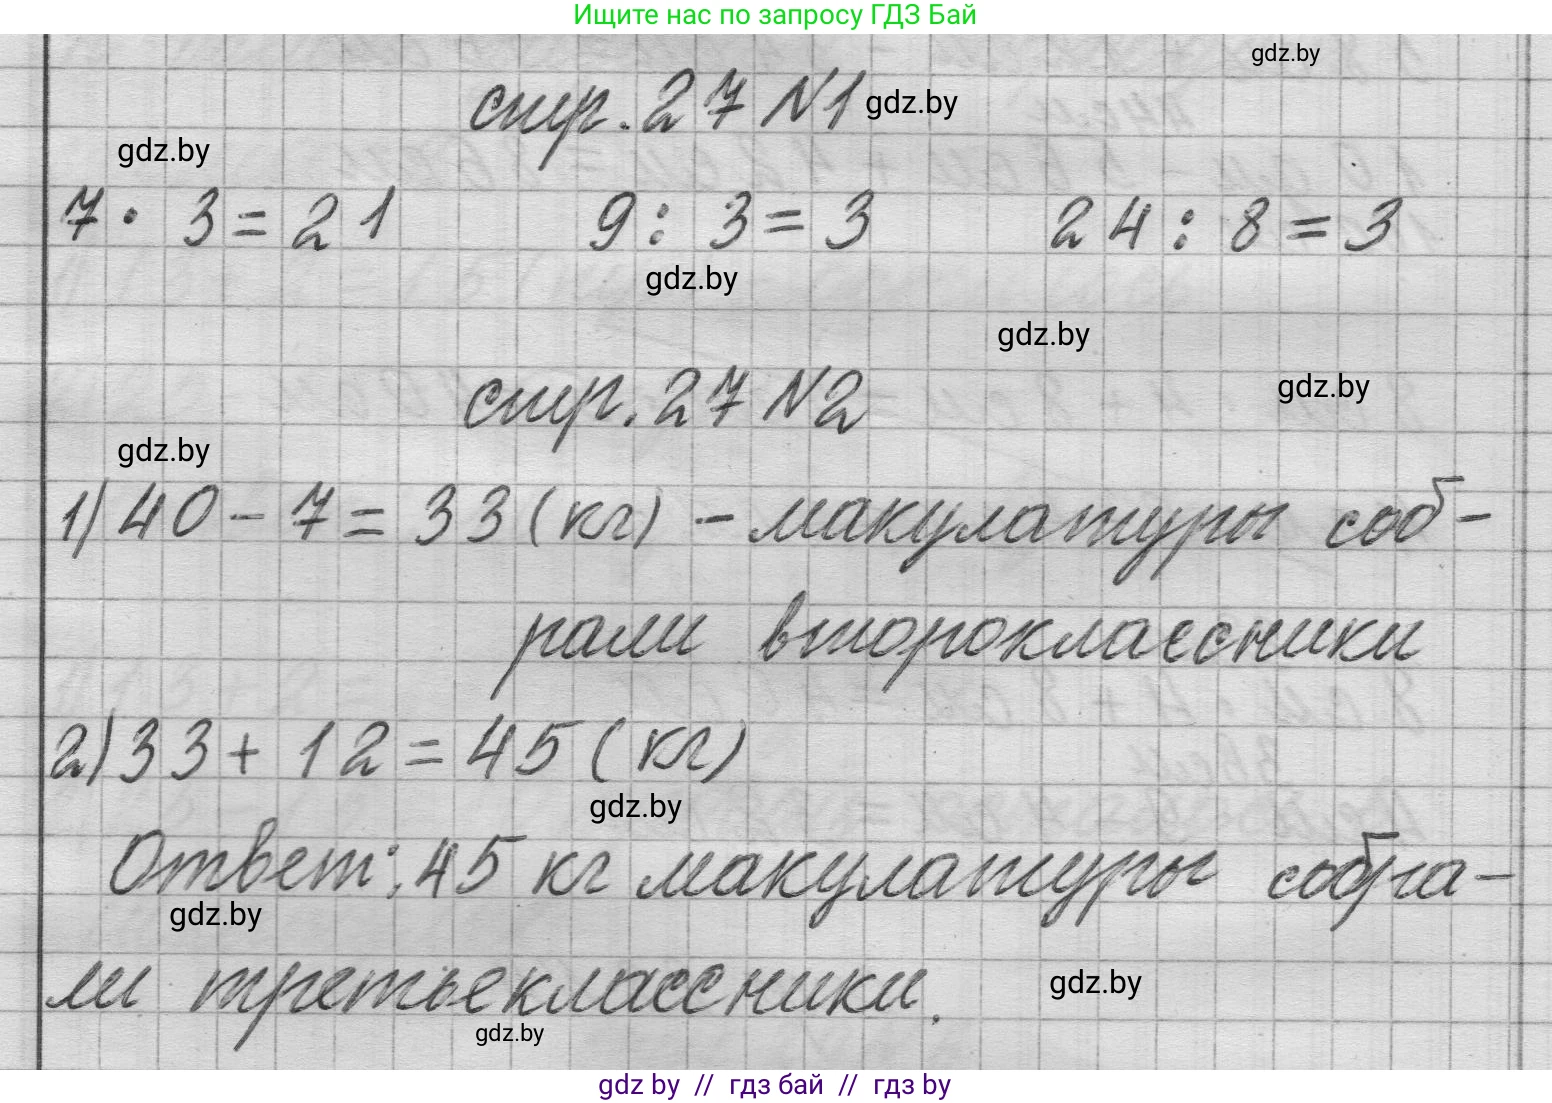 Ищите нас по запросу ГДЗ Бай
gdz.by
стр. 27 №1 gdz.by
gdz.by
7 · 3 = 21 9 : 3 = 3 24 : 8 = 3
gdz.by
gdz.by
стр. 27 №2
gdz.by
gdz.by
1) 40 - 7 = 33 (кг) - макулатуры соб-
рали второклассники
2) 33 + 12 = 45 (кг)
gdz.by
Ответ: 45 кг макулатуры собра-
gdz.by
ли третьеклассники.
gdz.by
gdz.by
gdz by // гдз бай // гдз by